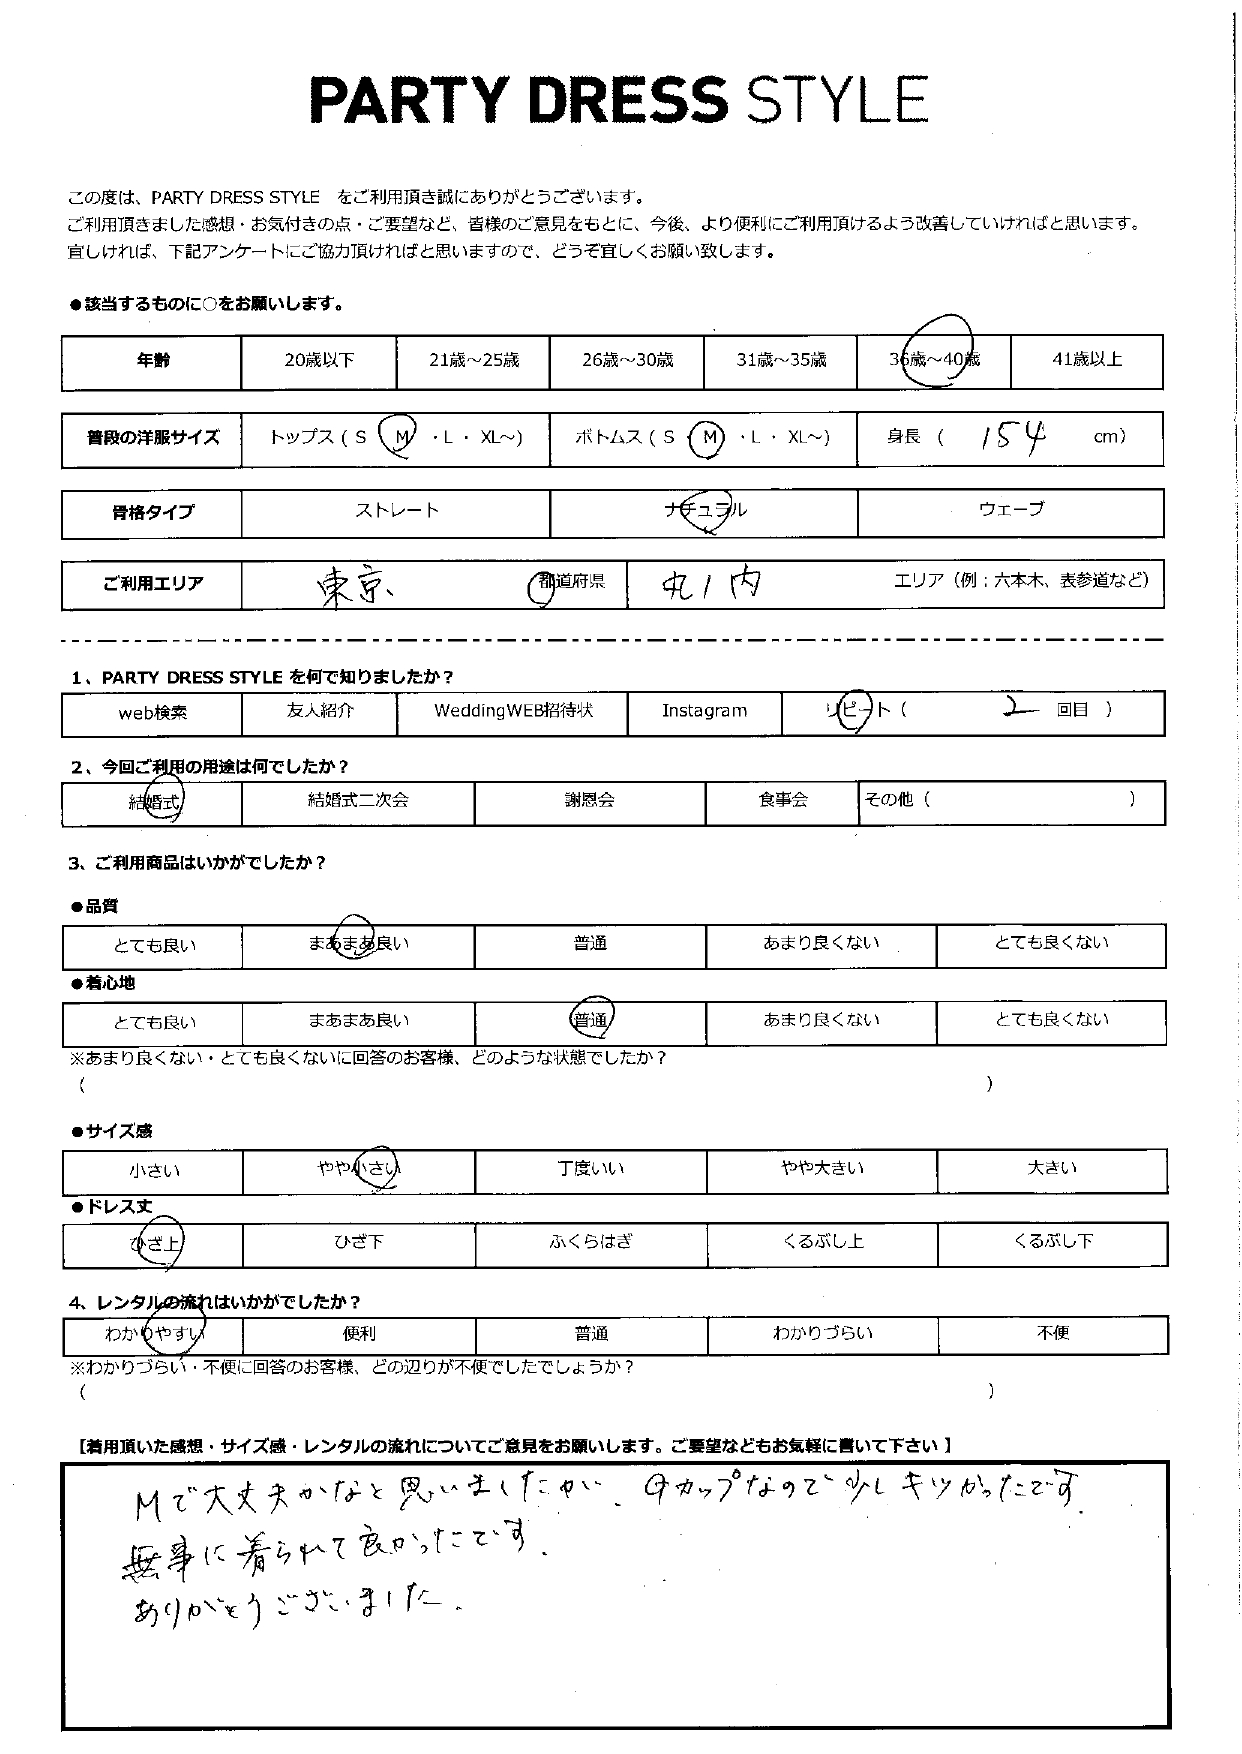 PARTY DRESS STYLE
この度は、PARTY DRESS STYLE をご利用頂き誠にありがとうございます。
ご利用頂きました感想・お気付きの点・ご要望など、皆様のご意見をもとに、今後、より便利にご利用頂けるよう改善していければと思います。
宜しければ、下記アンケートにご協力頂ければと思いますので、どうぞ宜しくお願い致します。
●該当するものに○をお願いします。
年齢 20歳以下 21歳～25歳 26歳～30歳 31歳～35歳 36歳～40歳 41歳以上
普段の洋服サイズ トップス ( S ・ M ・L ・ XL～) ボトムス ( S ・ M ・L ・ XL～) 身長 ( 154 cm)
骨格タイプ ストレート ナチュラル ウェーブ
ご利用エリア 東京、 都道府県 丸ノ内 エリア（例；六本木、表参道など）
1、PARTY DRESS STYLE を何で知りましたか？
web検索 友人紹介 WeddingWEB招待状 Instagram リピート ( 2 回目 )
2、今回ご利用の用途は何でしたか？
結婚式 結婚式二次会 謝恩会 食事会 その他 ( )
3、ご利用商品はいかがでしたか？
●品質
とても良い まあまあ良い 普通 あまり良くない とても良くない
●着心地
とても良い まあまあ良い 普通 あまり良くない とても良くない
※あまり良くない・とても良くないに回答のお客様、どのような状態でしたか？
( )
●サイズ感
小さい やや小さい 丁度いい やや大きい 大きい
●ドレス丈
ひざ上 ひざ下 ふくらはぎ くるぶし上 くるぶし下
4、レンタルの流れはいかがでしたか？
わかりやすい 便利 普通 わかりづらい 不便
※わかりづらい・不便に回答のお客様、どの辺りが不便でしたでしょうか？
( )
【着用頂いた感想・サイズ感・レンタルの流れについてご意見をお願いします。ご要望などもお気軽に書いて下さい 】
Mで大丈夫かなと思いましたが、Gカップなので少しキツかったです.
無事に着られて良かったです.
ありがとうございました.